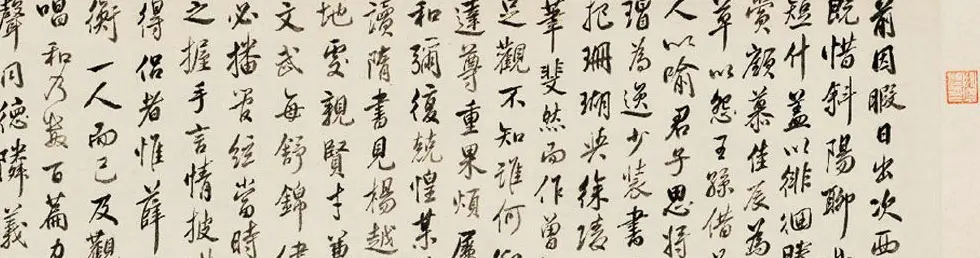 前因暇日出次西
既惜斜陽聊
短什蓋以徘徊勝
賞顧慕佳辰為
草以怨王孫借
人以喻君子思將
瑁為逸少裝書
把珊瑚與徐陵
筆斐然而作曾
足觀不知誰何
達尊重果煩屬
和彌復兢惶某
讀隋書見楊越
地處親賢才兼
文武每舒錦繡
必播管絃當時
之握手言情披
得侶者惟薛
衡一人而已及觀
唱和乃數百篇力
聲同德隣義